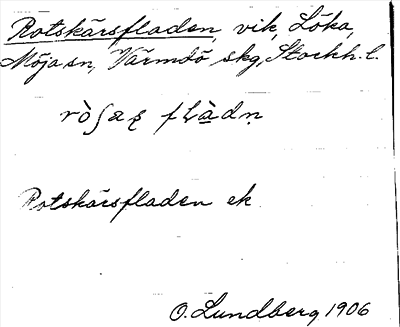 Rotskärsfladen, vik, Löka,
Möja sn, Värmdö skg, Stockh. l.
Rotskärsfladen ek.
O. Lundberg 1906